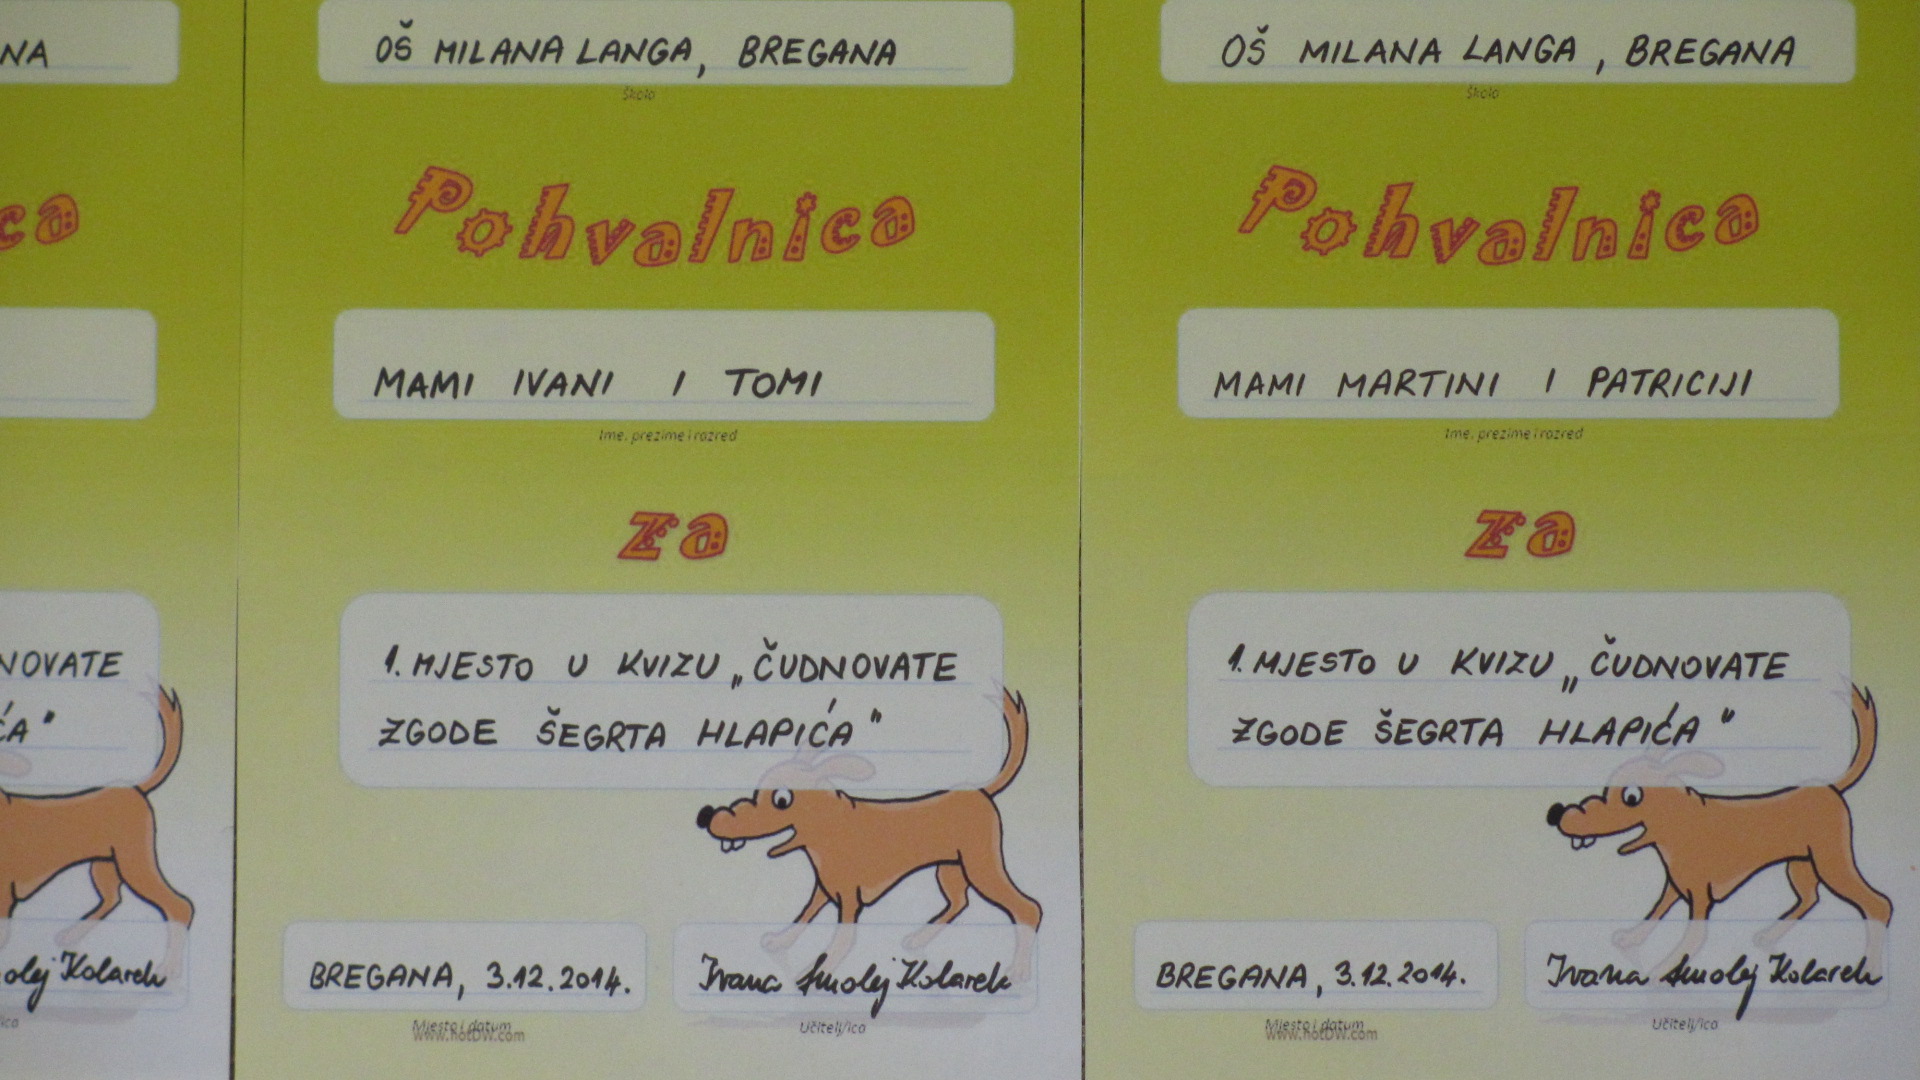 NA
ca
NOVATE
ĆA"
olej Kolarek
ica
OŠ MILANA LANGA, BREGANA
Škola
Pohvalnica
MAMI IVANI I TOMI
Ime, prezime i razred
za
1. MJESTO U KVIZU „ČUDNOVATE
ZGODE ŠEGRTA HLAPIĆA"
BREGANA, 3.12.2014.
Ivana Smolej Kolarek
Mjesto i datum
www.hotDW.com
Učitelj/ica
OŠ MILANA LANGA, BREGANA
Škola
Pohvalnica
MAMI MARTINI I PATRICIJI
Ime, prezime i razred
za
1. MJESTO U KVIZU „ČUDNOVATE
ZGODE ŠEGRTA HLAPIĆA"
BREGANA, 3.12.2014.
Ivana Smolej Kolarek
Mjesto i datum
www.hotDW.com
Učitelj/ica